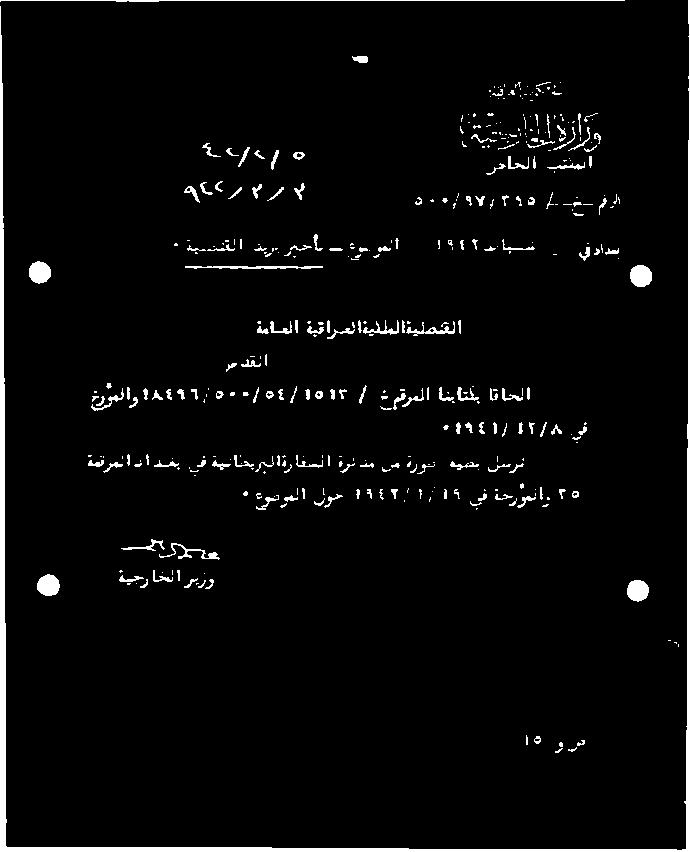 الحكومة العراقية
وزارة الخارجية
المكتب الخاص
٤٢/٢/٥
٩٤٢/٢/٢
الرقم خ / ٥٠٠/٩٧/٢٩٥
بغداد في شباط ١٩٤٢
الموضوع - تأخير بريد القنصلية ٠
القنصلية الملكية العراقية العامة
القدس
الحاقا بكتابنا المرقم خ / ١٨٤٩٦/٥٠٠/٥٤/١٥١٣ والمؤرخ
في ١٩٤١/١٢/٨٠
نرسل بطيه صورة من مذكرة السفارة البريطانية في بغداد المرقمة
٢٥ والمؤرخة في ١٩٤٢/١/١٩ حول الموضوع ٠
وزير الخارجية
١٥